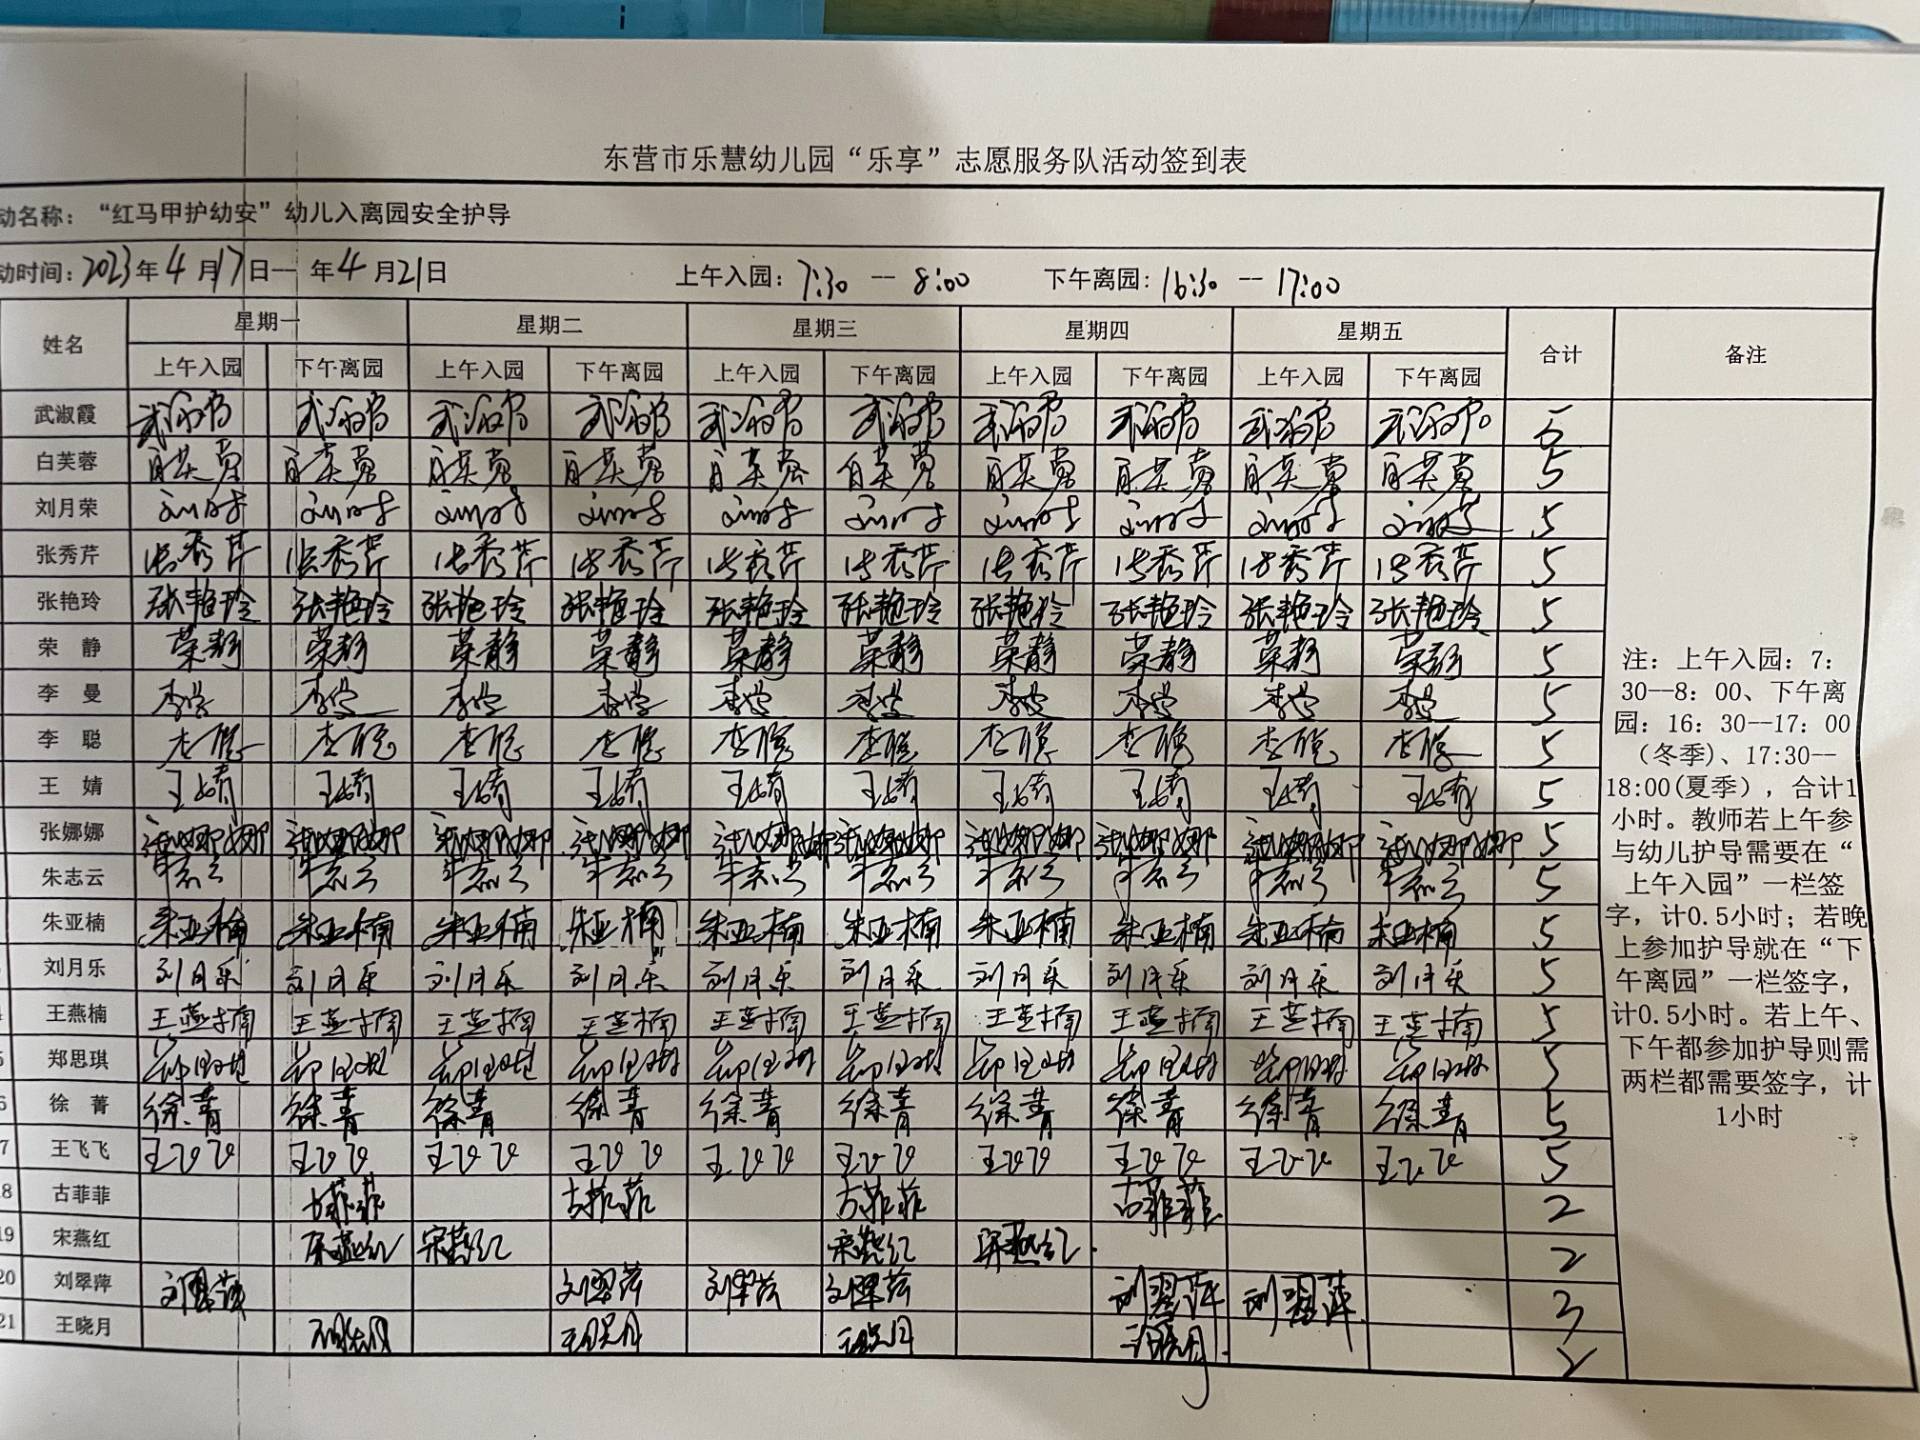 东营市乐慧幼儿园“乐享”志愿服务队活动签到表
动名称：“红马甲护幼安”幼儿入离园安全护导
动时间：2023年4月17日一 年4月21日 上午入园：7:30 -- 8:00 下午离园：16:30 -- 17:00
姓名 星期一 星期二 星期三 星期四 星期五 合计 备注
上午入园 下午离园 上午入园 下午离园 上午入园 下午离园 上午入园 下午离园 上午入园 下午离园
武淑霞 5
白芙蓉 白芙蓉 白芙蓉 白芙蓉 白芙蓉 白芙蓉 白芙蓉 白芙蓉 白芙蓉 白芙蓉 白芙蓉 5
刘月荣 5
张秀芹 张秀芹 张秀芹 张秀芹 张秀芹 张秀芹 张秀芹 张秀芹 张秀芹 张秀芹 张秀芹 5
张艳玲 张艳玲 张艳玲 张艳玲 张艳玲 张艳玲 张艳玲 张艳玲 张艳玲 张艳玲 张艳玲 5
荣 静 荣静 荣静 荣静 荣静 荣静 荣静 荣静 荣静 荣静 荣静 5
李 曼 李曼 李曼 李曼 李曼 李曼 李曼 李曼 李曼 李曼 李曼 5
李 聪 李聪 李聪 李聪 李聪 李聪 李聪 李聪 李聪 李聪 李聪 5
王 婧 王婧 王婧 王婧 王婧 王婧 王婧 王婧 王婧 王婧 王婧 5
张娜娜 张娜娜 张娜娜 张娜娜 张娜娜 张娜娜 张娜娜 张娜娜 张娜娜 张娜娜 张娜娜 5
朱志云 朱志云 朱志云 朱志云 朱志云 朱志云 朱志云 朱志云 朱志云 朱志云 朱志云 5
朱亚楠 朱亚楠 朱亚楠 朱亚楠 朱亚楠 朱亚楠 朱亚楠 朱亚楠 朱亚楠 朱亚楠 朱亚楠 5
刘月乐 刘月乐 刘月乐 刘月乐 刘月乐 刘月乐 刘月乐 刘月乐 刘月乐 刘月乐 刘月乐 5
王燕楠 王燕楠 王燕楠 王燕楠 王燕楠 王燕楠 王燕楠 王燕楠 王燕楠 王燕楠 王燕楠 5
5 郑思琪 5
6 徐 菁 徐菁 徐菁 徐菁 徐菁 徐菁 徐菁 徐菁 徐菁 徐菁 徐菁 5
7 王飞飞 王飞飞 王飞飞 王飞飞 王飞飞 王飞飞 王飞飞 王飞飞 王飞飞 王飞飞 王飞飞 5
18 古菲菲 古菲菲 古菲菲 古菲菲 古菲菲 2
19 宋燕红 宋燕红 宋燕红 宋燕红 宋燕红 2
20 刘翠萍 刘翠萍 刘翠萍 刘翠萍 刘翠萍 刘翠萍 刘翠萍 3
21 王晓月 王晓月 王晓月 王晓月 王晓月 2
注：上午入园：7：
30--8：00、下午离
园：16：30--17：00
（冬季）、17:30--
18:00(夏季），合计1
小时。教师若上午参
与幼儿护导需要在“
上午入园”一栏签
字，计0.5小时；若晚
上参加护导就在“下
午离园”一栏签字，
计0.5小时。若上午、
下午都参加护导则需
两栏都需要签字，计
1小时